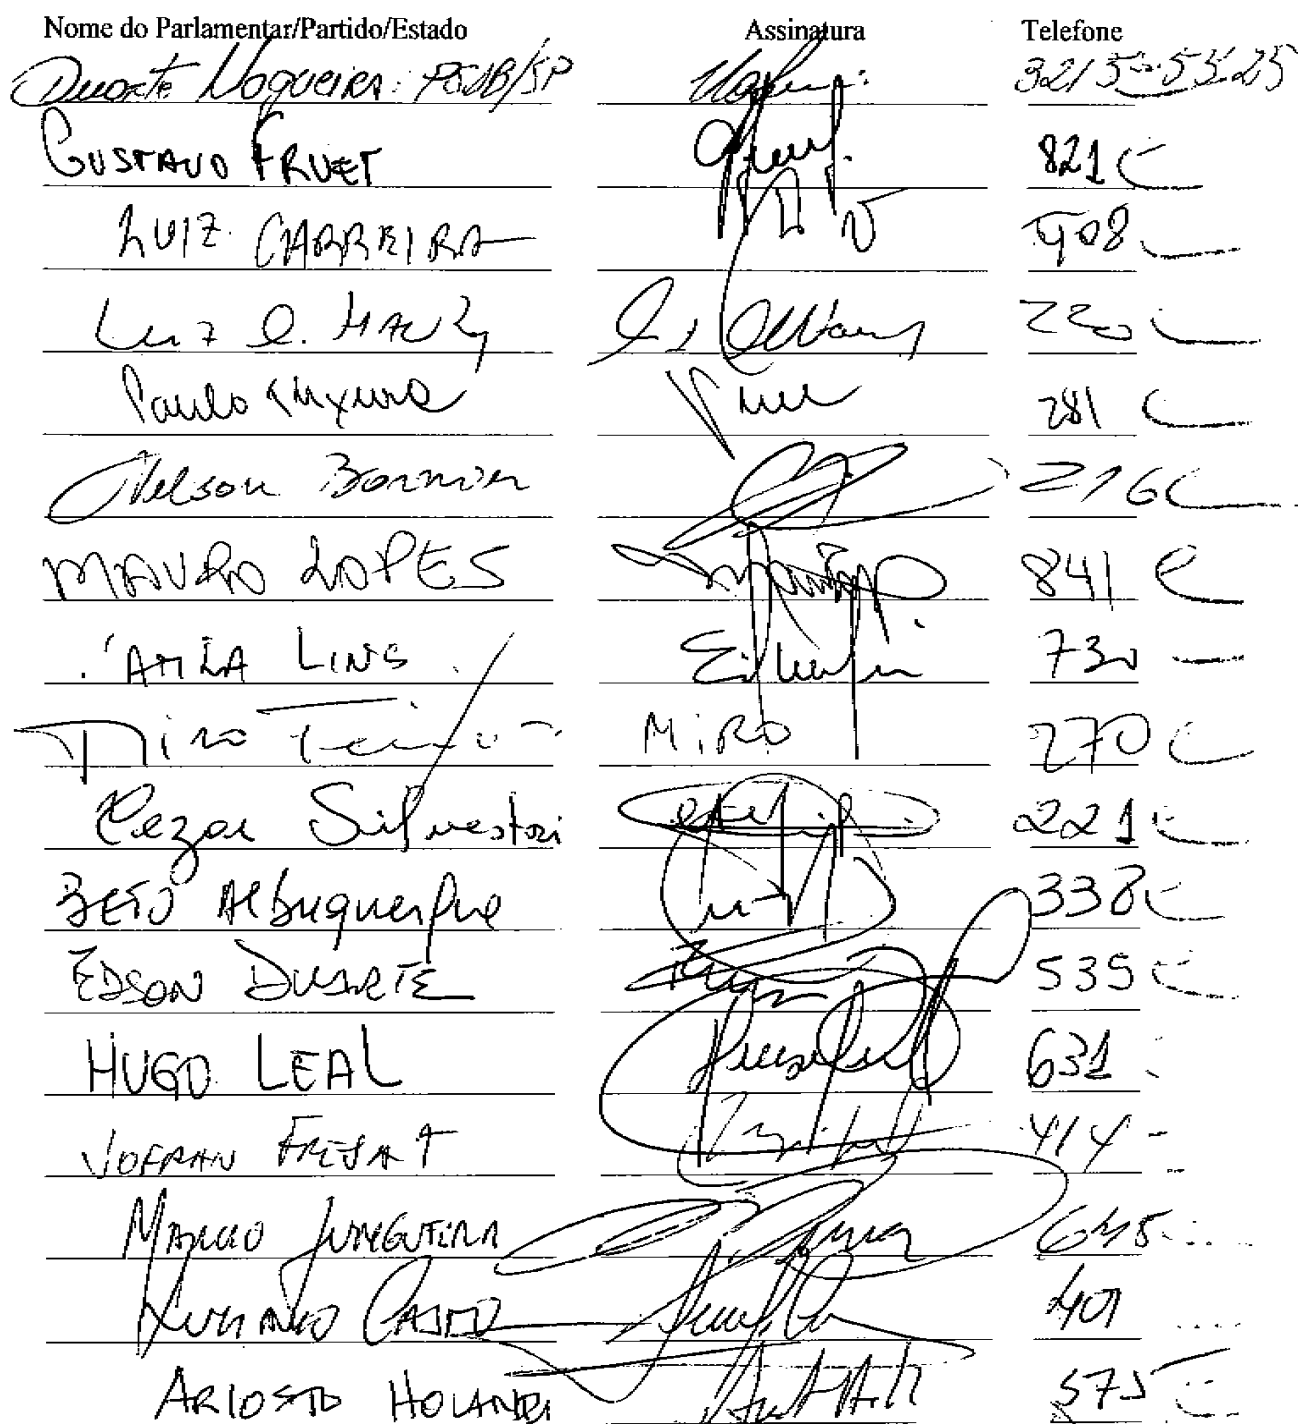 Nome do Parlamentar/Partido/Estado Assinatura Telefone
Duarte Nogueira: PSDB/SP 3215-5325
GUSTAVO FRUET 821
LUIZ CARREIRA 408
Luiz C. Hauly 220
Paulo Teixeira 281
Nelson Bornier 216
MAURO LOPES 841
ATILA LINS 730
Miro Teixeira MiRO 270
Cezar Silvestri 221
BETO Albuquerque 338
EDSON DUARTE 535
HUGO LEAL 631
JOFRAN FREJAT 414
MARCIO JUNQUEIRA 645
LUCIANO CASTRO 401
ARIOSTO HOLANDA 575